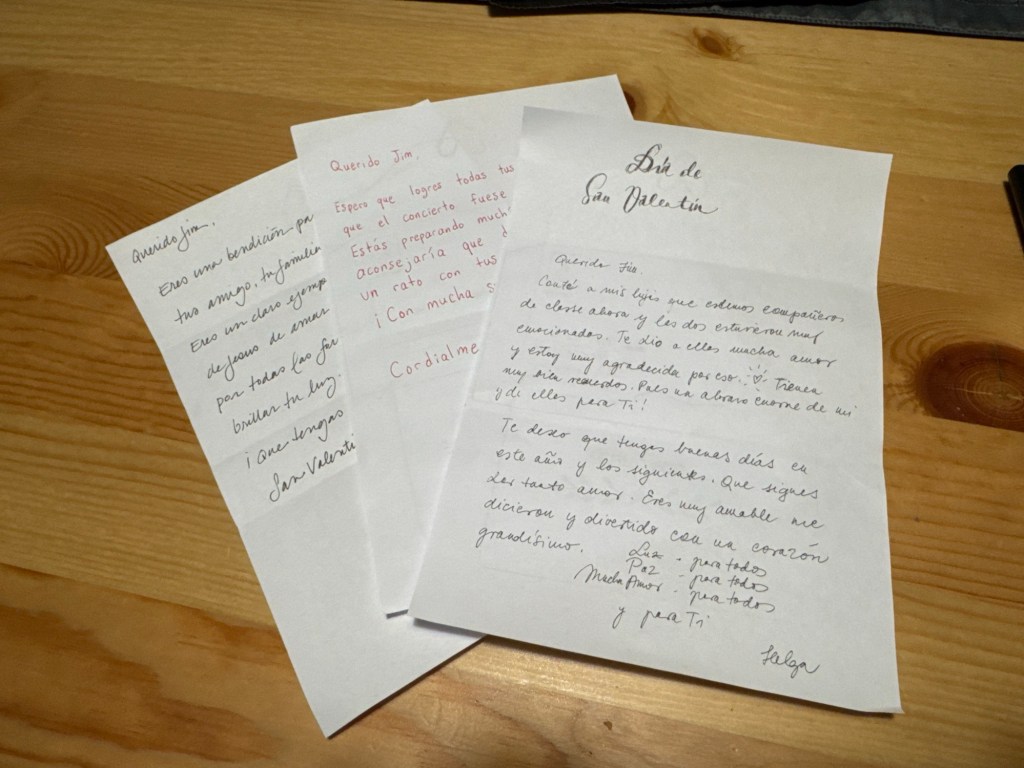 Querido Jim.
Eres una bendición pa
tus amigo, tu familia
Eres un claro ejemp
de Jesus de amar
por todas las for
brillar tu luz.
¡Que tengas
San Valenti
Querido Jim,
Espero que logres todas tus
que el concierto fuese
Estás preparando much
aconsejaría que d
un rato con tus
¡Con mucha s
Cordialme
Día de
San Valentín
Querido Jim.
Conté a mis hijis que estemos compañeros
de clase ahora y los dos estuvieron muy
emocionados. Te dio a ellos mucha amor
y estoy muy agradecida por eso. Tienen
muy bien recuerdos. Pues un abrazo enorme de mi
y de ellos para Ti!
Te deseo que tengas buenas días en
este año y los siguientes. Que sigues
der tanto amor. Eres muy amable me
dicieron y divertido con un corazón
grandísimo.
Luz - para todos
Paz - para todos
Mucha Amor - para todos
y para Ti
Helga